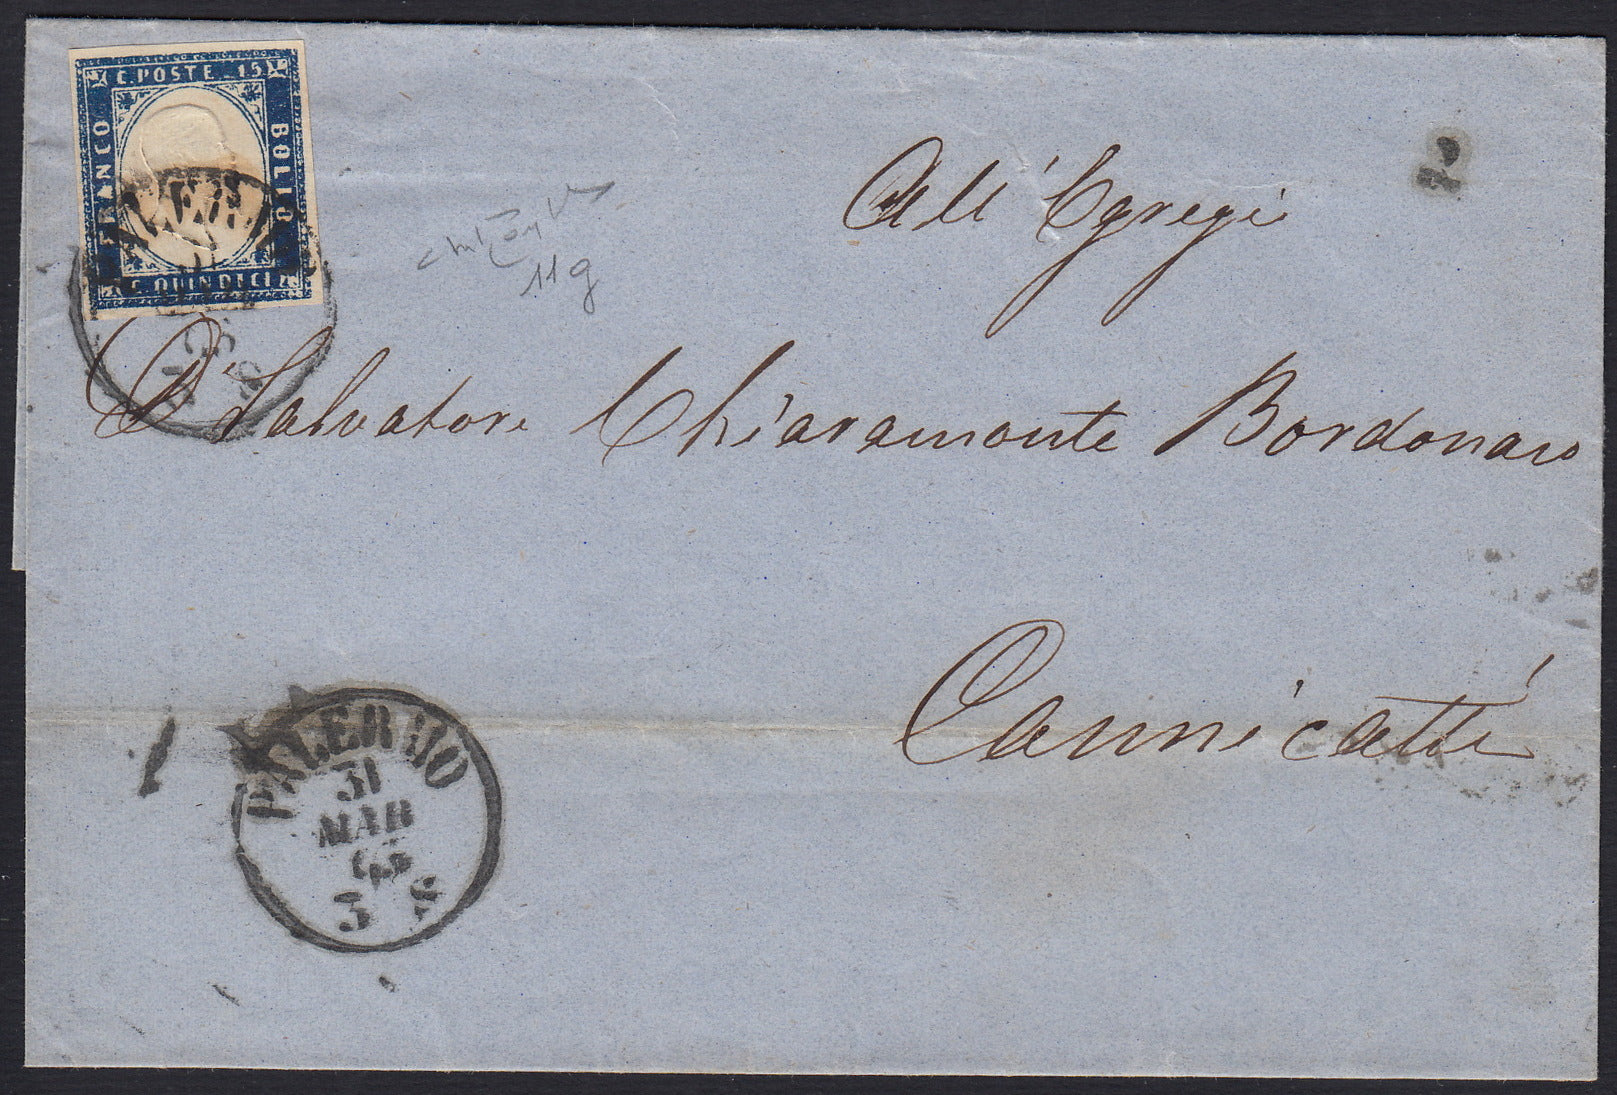 C. POSTE. 15
FRANCO
BOLLO
C. QUINDICI
2
All' Egregi
11g
D. Salvatore Chiaramonte Bordonaro
Cannicatti
PALERMO
31
MAR
63
3 S